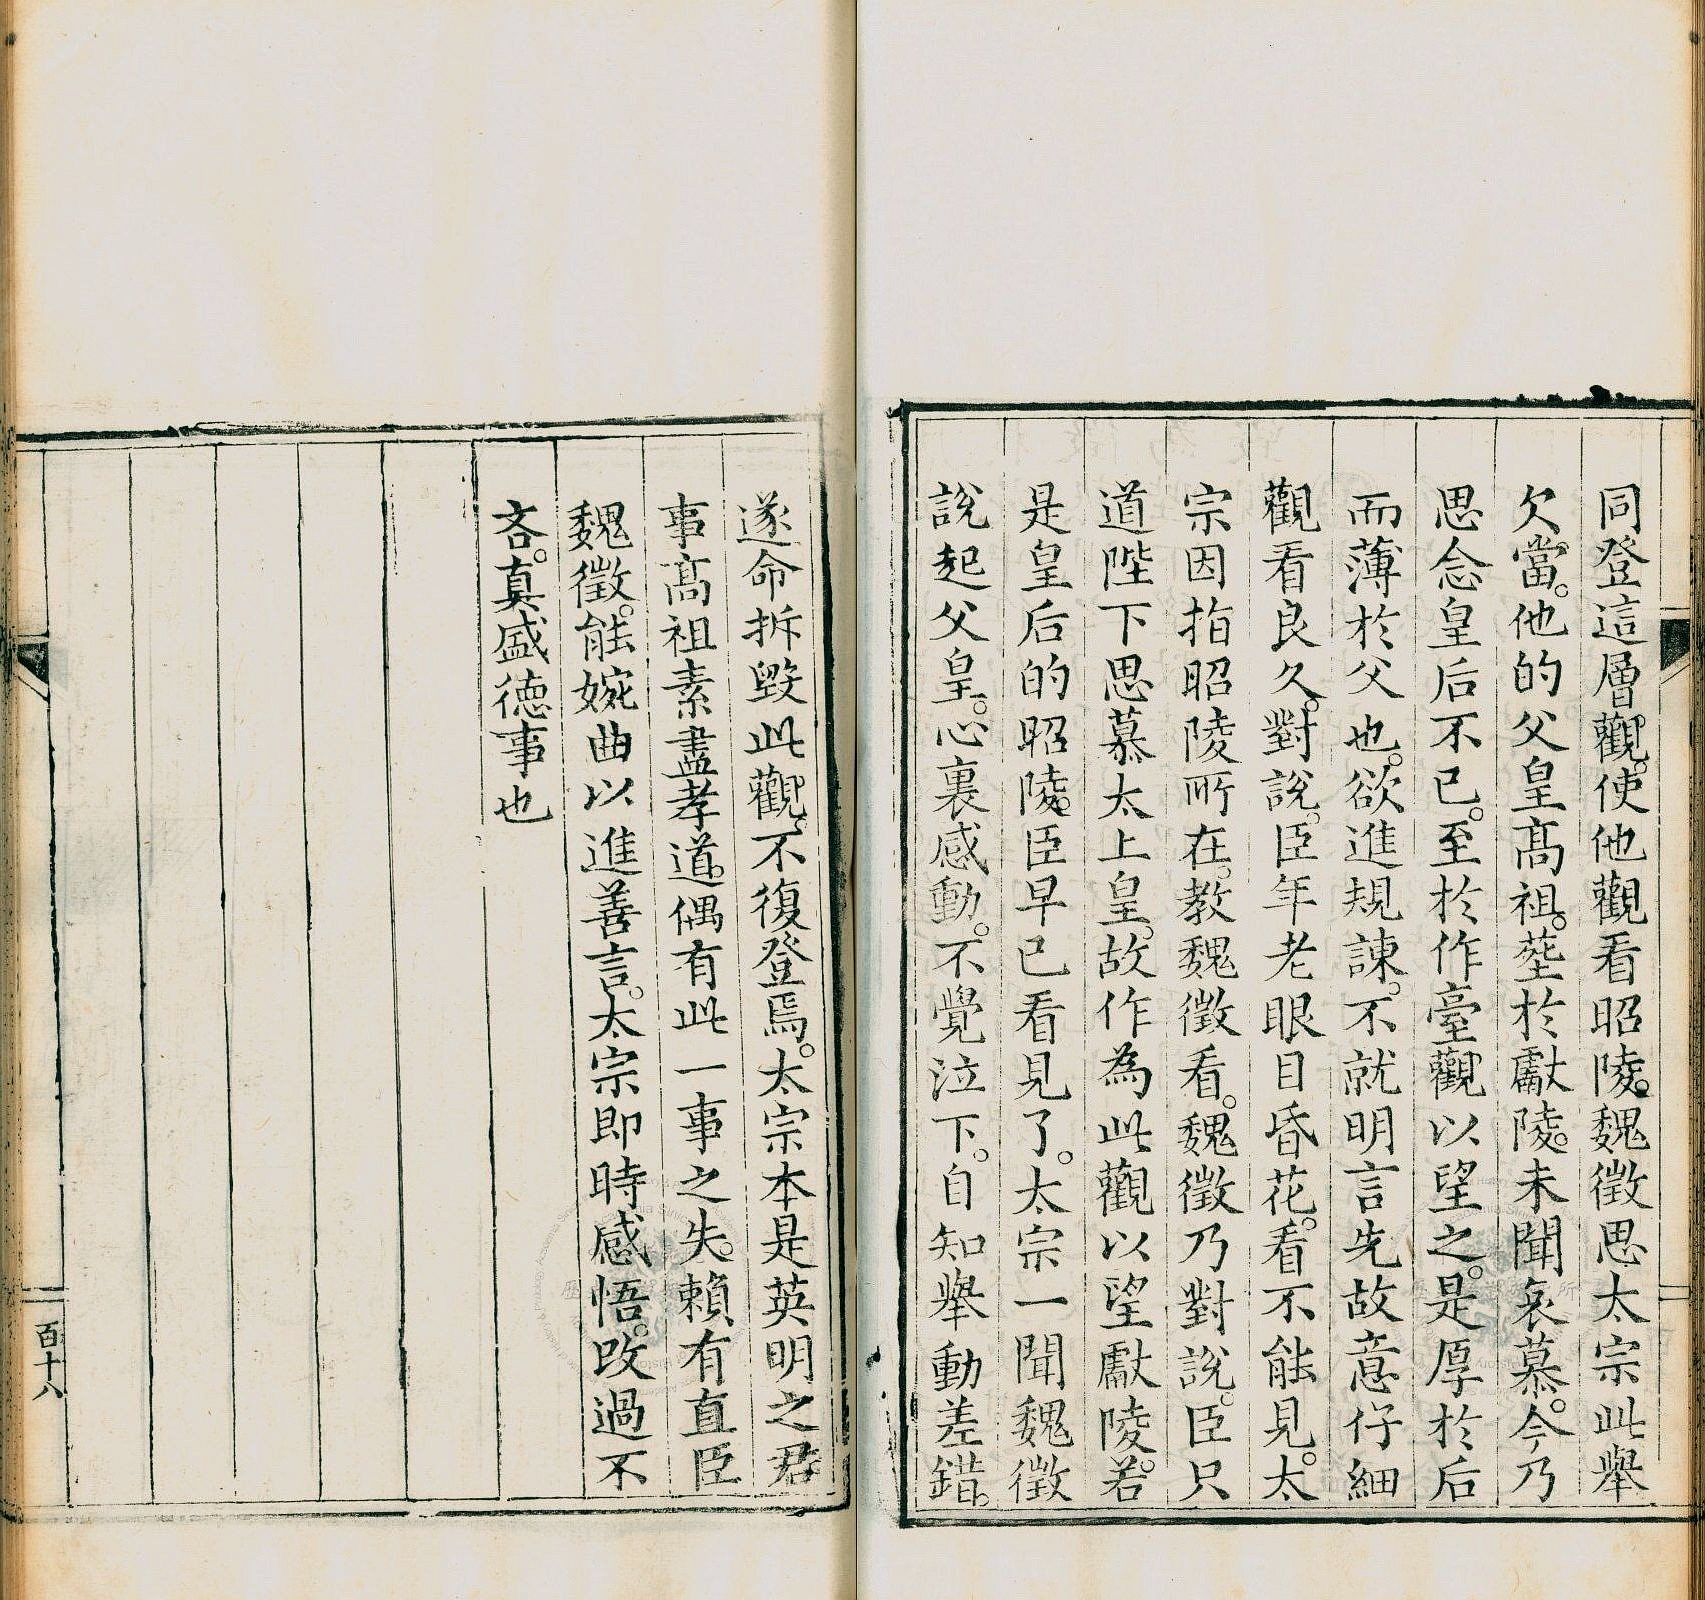 同登這層觀。使他觀看昭陵。魏徵思太宗此舉
欠當。他的父皇高祖。塟於獻陵。未聞哀慕。今乃
思念皇后不已。至於作臺觀以望之。是厚於后
而薄於父也。欲進規諫。不就明言先故意仔細
觀看良久。對說。臣年老眼目昏花。看不能見。太
宗因指昭陵所在。教魏徵看。魏徵乃對說。臣只
道陛下思慕太上皇。故作為此觀以望獻陵。若
是皇后的昭陵。臣早已看見了。太宗一聞魏徵
說起父皇。心裏感動。不覺泣下。自知舉動差錯。
遂命拆毀此觀。不復登焉。太宗本是英明之君
事高祖素盡孝道。偶有此一事之失。賴有直臣
魏徵。能婉曲以進善言。太宗即時感悟。改過不
吝。真盛德事也
百十八